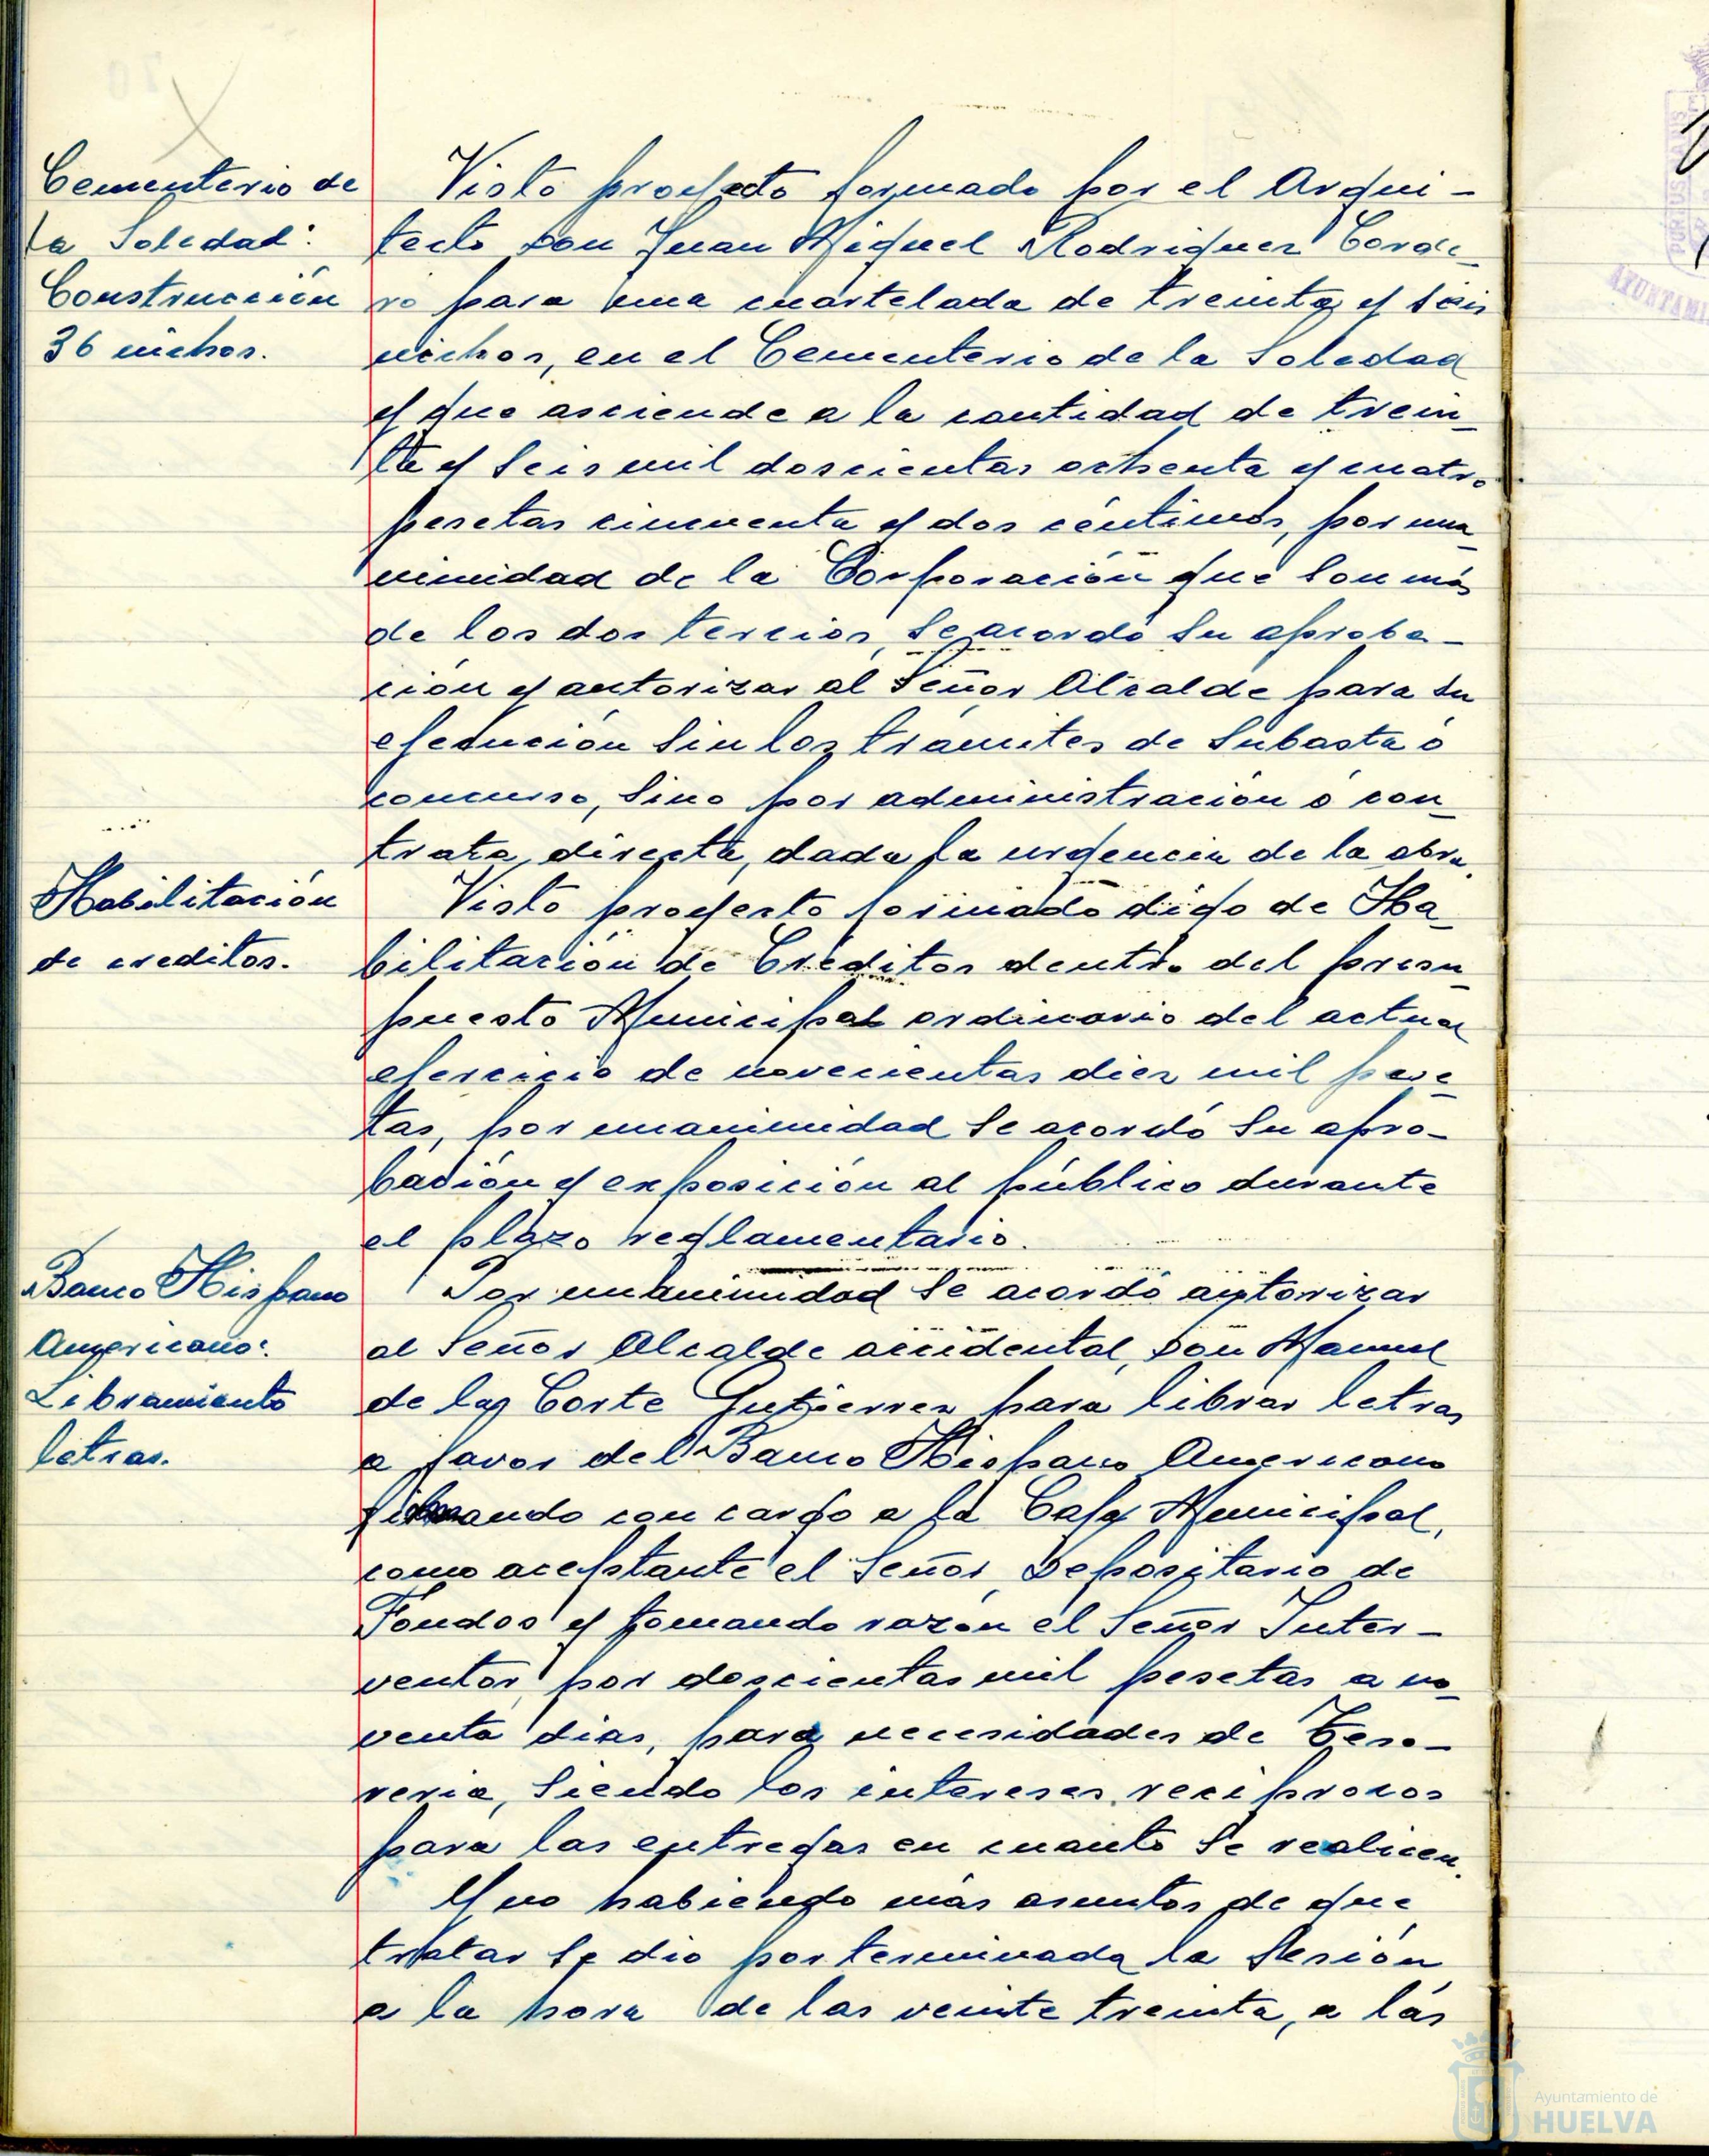 Cementerio de
la Soledad:
Construcción
36 nichos.
Visto proyecto formado por el Arqui-
tecto Don Juan Miguel Rodriguez Corde-
ro para una cuartelada de treinta y seis
nichos, en el Cementerio de la Soledad
y que asciende a la cantidad de trein-
ta y seis mil doscientas ochenta y cuatro
pesetas cincuenta y dos céntimos, por una-
nimidad de la Corporación que son más
de los dos tercios, se acordó su aproba-
ción y autorizar al Señor Alcalde para su
ejecución sin los trámites de subasta ó
concurso, sino por administración ó con-
trata directa, dada la urgencia de la obra.
Habilitación
de creditos.
Visto proyecto formado digo de Ha-
bilitación de Créditos dentro del presu-
puesto Municipal ordinario del actual
ejercicio de novecientas diez mil pese-
tas, por unanimidad se acordó su apro-
bación y exposición al público durante
el plazo reglamentario.
Banco Hispano
Americano:
Libramiento
letras.
Por unanimidad se acordó autorizar
al Señor Alcalde accidental, Don Manuel
de la Corte Gutierrez para librar letras
a favor del Banco Hispano Americano
librando con cargo a la Caja Municipal,
como aceptante el Señor Depositario de
Fondos y tomando razón el Señor Inter-
ventor, por doscientas mil pesetas a no-
venta dias, para necesidades de Teso-
reria, siendo los intereses reciprocos
para las entregas en cuanto se realicen.
Y no habiendo más asuntos de que
tratar se dió por terminada la Sesión
a la hora de las veinte treinta, a las
PURUS MARIS
AYUNTAMI
Ayuntamiento de
HUELVA